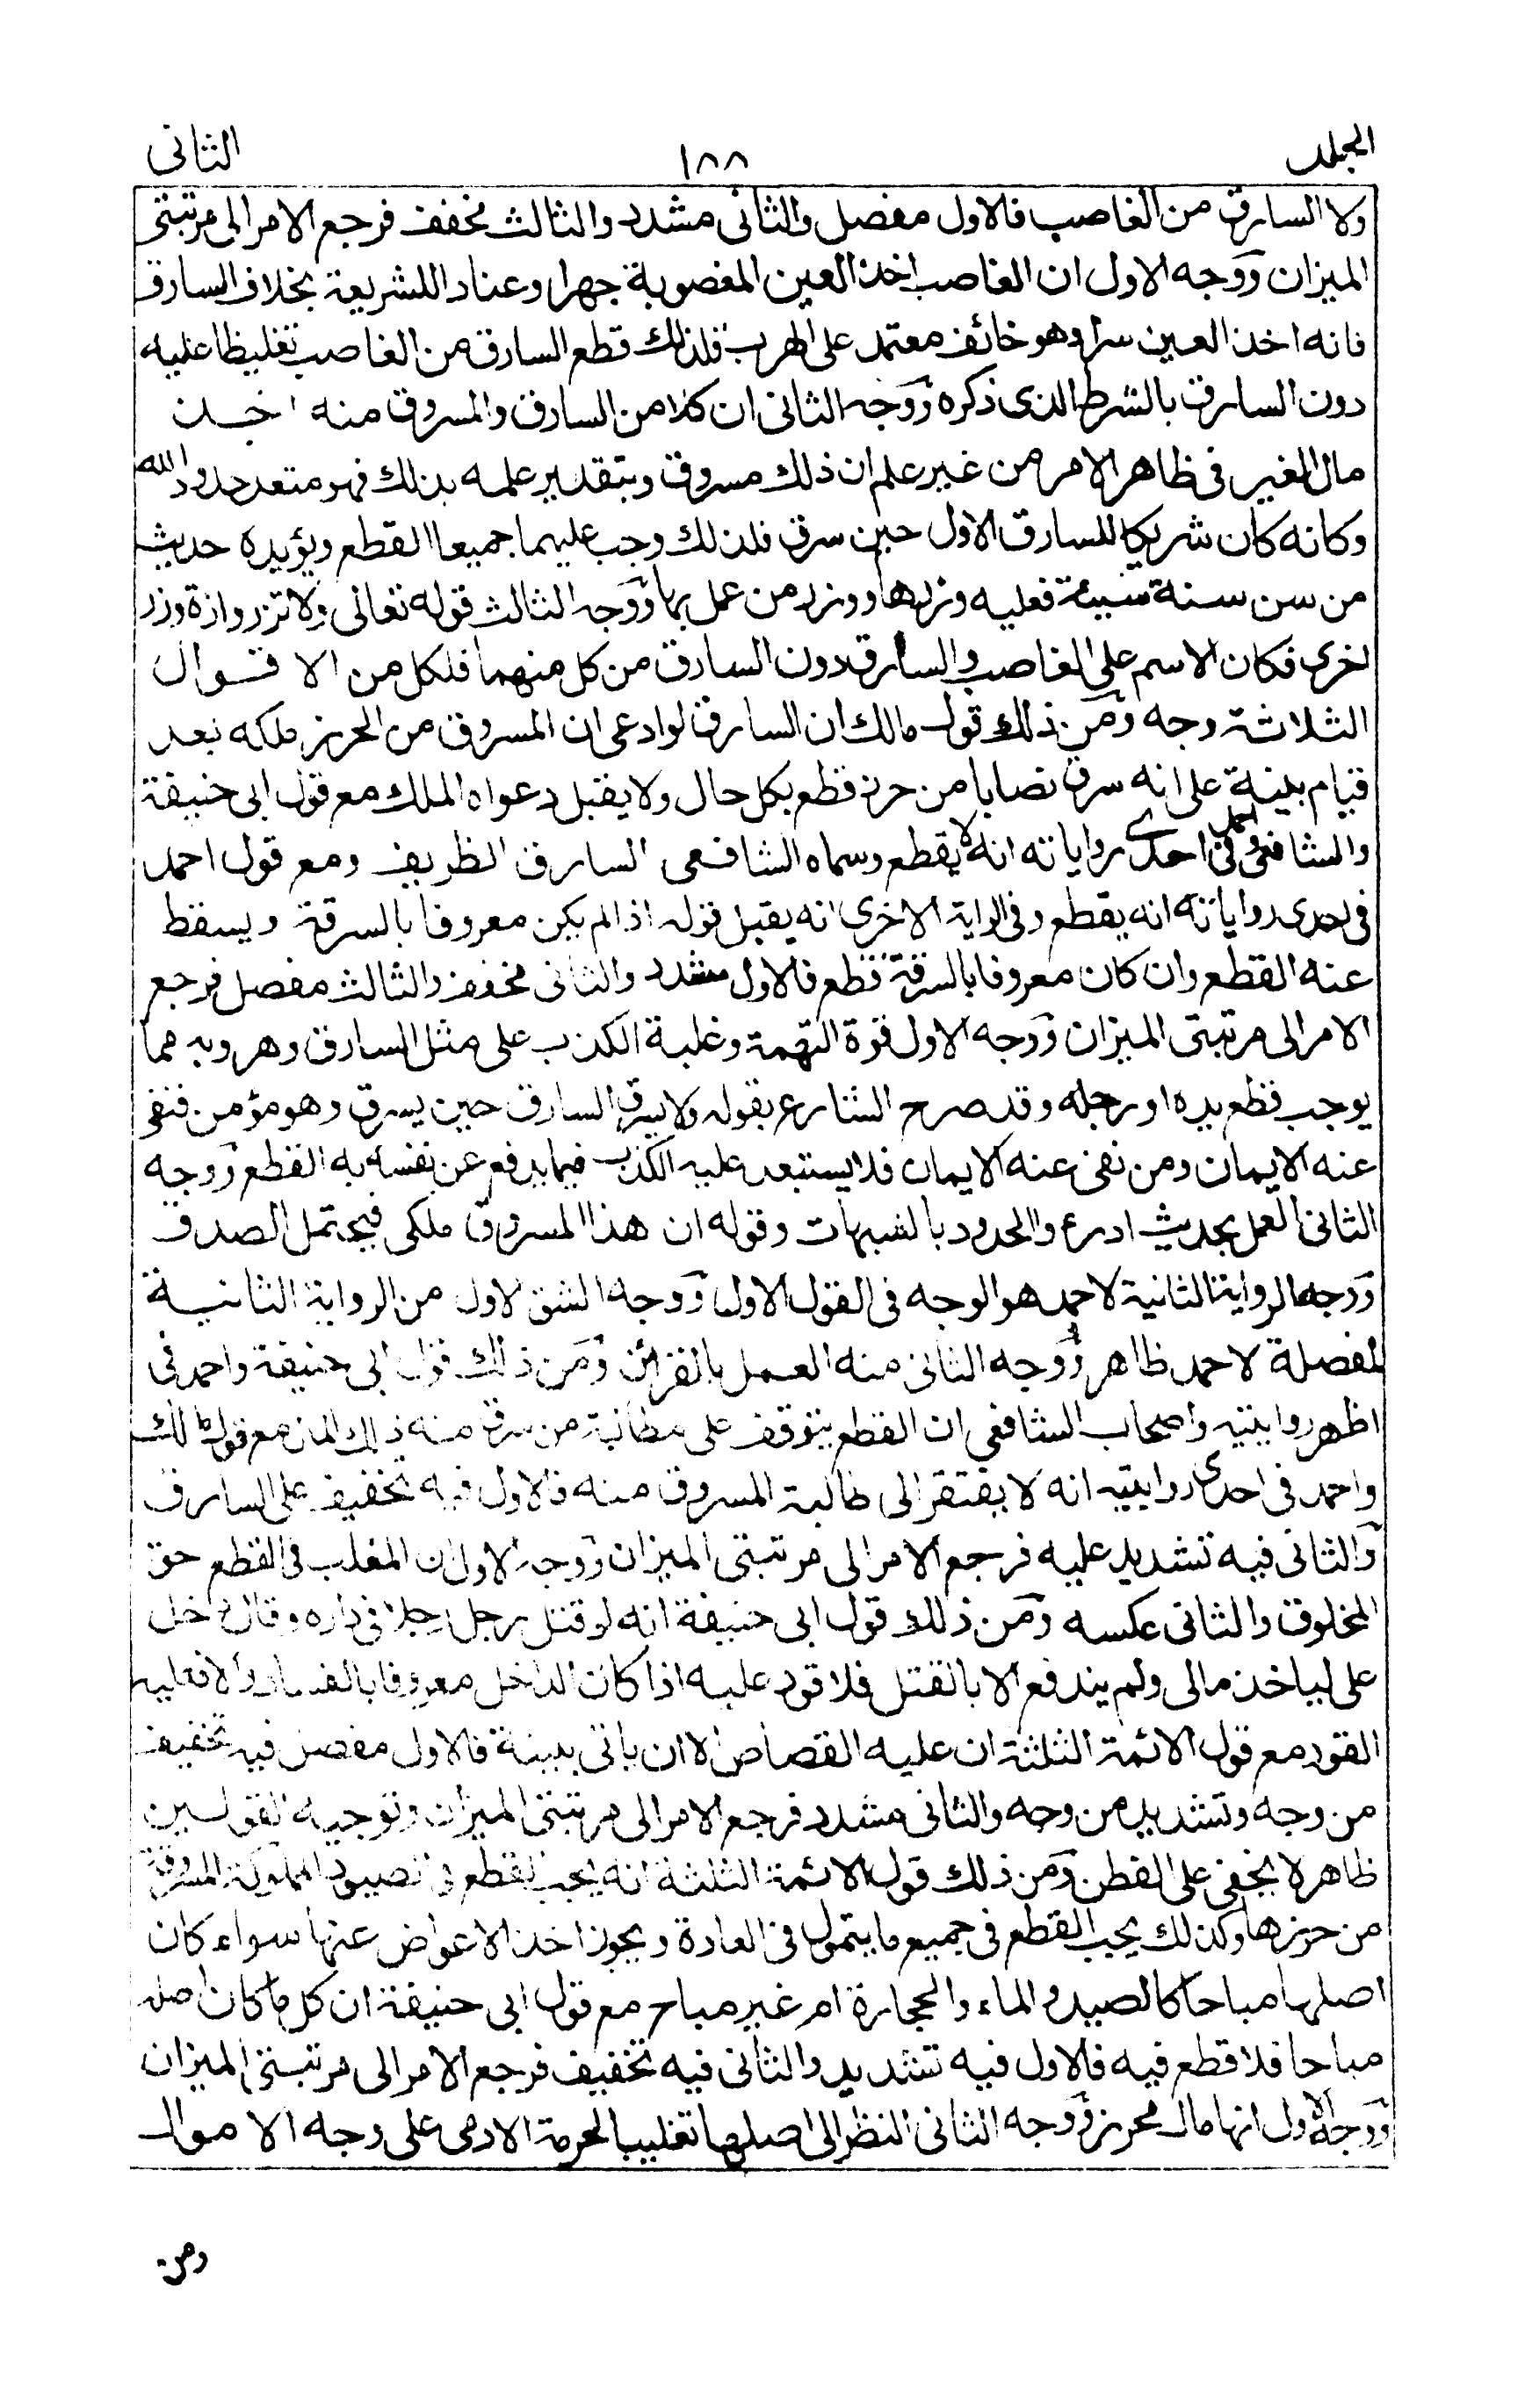 المجلد ١٨٨ الثانى
ولا السارق من الغاصب فالاول مفصل والثانى مشدد والثالث مخفف فرجع الامر الى مرتبتى
الميزان ووجه الاول ان الغاصب اخذ العين المغصوبة جهرا وعنادا للشريعة بخلاف السارق
فانه اخذ العين سرا وهو خائف معتمد على الهرب فلذلك قطع السارق من الغاصب تغليظا عليه
دون السارق بالشرط الذى ذكره ووجه الثانى ان كلا من السارق والمسروق منه اخذ
مال الغير فى ظاهر الامر من غير علم ان ذلك مسروق وبتقدير علمه بذلك فهو متعد حدود الله
وكانه كان شريكا للسارق الاول حين سرق فلذلك وجب عليهما جميعا القطع ويؤيده حديث
من سن سنة سيئة فعليه وزرها ووزر من عمل بها ووجه الثالث قوله تعالى ولا تزر وازة وزر
اخرى فكان الاسم على الغاصب والسارق دون السارق من كل منهما فلكل من الاقوال
الثلاثة وجه ومن ذلك قول مالك ان السارق لو ادعى ان المسروق من الحرز ملكه بعد
قيام بينة على انه سرق نصابا من حرز قطع بكل حال ولا يقبل دعواه الملك مع قول ابى حنيفة
والشافعى واحمد فى احدى رواياته انه لا يقطع وسماه الشافعى السارق الظريف ومع قول احمد
فى احدى رواياته انه يقطع وفى الراية الاخرى انه يقبل قوله اذا لم يكن معروفا بالسرقة ويسقط
عنه القطع وان كان معروفا بالسرقة قطع فالاول مشدد والثانى مخفف والثالث مفصل فرجع
الامر الى مرتبتى الميزان ووجه الاول قوة التهمة وغلبة الكذب على مثل السارق وهروبه مما
يوجب قطع يده او رجله وقد صرح الشارع بقوله ولا يسرق السارق حين يسرق وهو مؤمن فنفى
عنه الايمان ومن نفى عنه الايمان فلا يستبعد عليه الكذب فيما يدفع عن نفسه به القطع ووجه
الثانى العمل بحديث ادرءوا الحدود بالشبهات وقوله ان هذا المسروق ملكى فيحتمل الصدق
ووجه الرواية الثانية لاحمد هو الوجه فى القول الاول ووجه الشق الاول من الرواية الثانية
المفصلة لاحمد ظاهر ووجه الثانى منه العمل بالقرائن ومن ذلك قول ابى حنيفة واحمد فى
اظهر روايتيه واصحاب الشافعى ان القطع يتوقف على مطالبة من سرق منه ذلك المال مع قول مالك
واحمد فى احدى روايتيه انه لا يفتقر الى طالبة المسروق منه فالاول فيه تخفيف على السارق
والثانى فيه تشديد عليه فرجع الامر الى مرتبتى الميزان ووجه الاول ان المغلب فى القطع حق
المخلوق والثانى عكسه ومن ذلك قول ابى حنيفة انه لو قتل رجل رجلا فى داره وقال دخل
على لياخذ مالى ولم يندفع الا بالقتل فلا قود عليه اذا كان الداخل معروفا بالفساد والا فعليه
القود مع قول الائمة الثلثة ان عليه القصاص الا ان ياتى ببينة فالاول مفصل فيه تخفيف
من وجه وتشديد من وجه والثانى مشدد فرجع الامر الى مرتبتى الميزان وتوجيه القولين
ظاهر لا يخفى على الفطن ومن ذلك قول الائمة الثلثة انه يجب القطع فى الصيود المملوكة المسروقة
من حرزها وكذلك يجب القطع فى جميع ما يتمول فى العادة ويجوز اخذ الاعواض عنها سواء كان
اصلها مباحا كالصيد والماء والحجارة ام غير مباح مع قول ابى حنيفة ان كل ما كان اصله
مباحا فلا قطع فيه فالاول فيه تشديد والثانى فيه تخفيف فرجع الامر الى مرتبتى الميزان
ووجه الاول انها مال محرز ووجه الثانى النظر الى اصلها تغليبا لحرمة الادمى على وجه الاموال
ومن